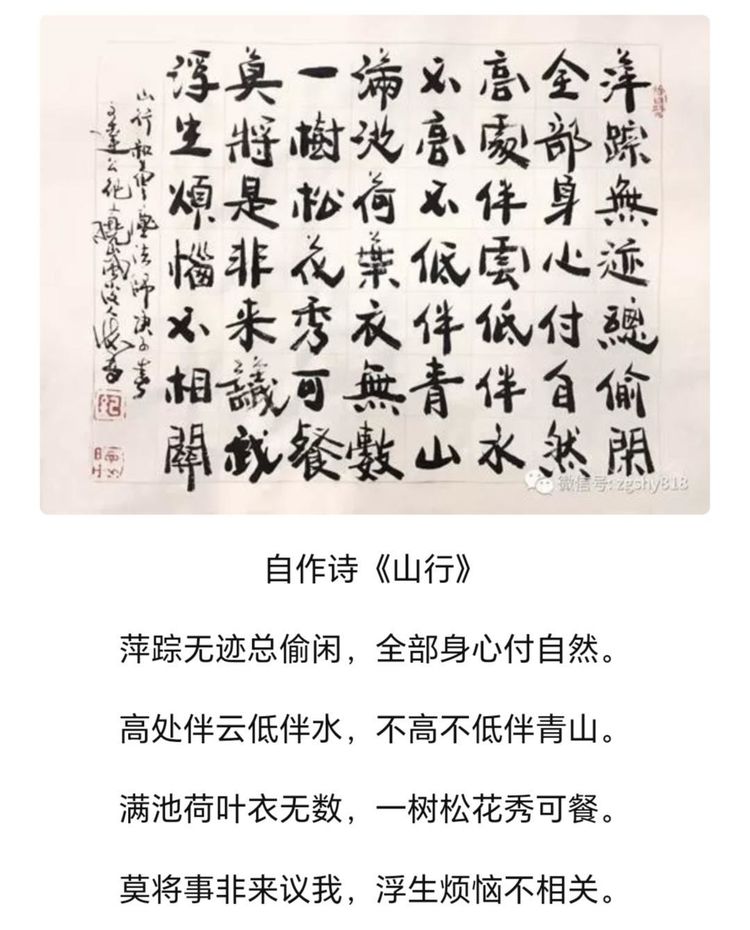 萍踪無迹總偷閑
全部身心付自然
高處伴雲低伴水
不高不低伴青山
滿池荷葉衣無數
一樹松花秀可餐
莫將是非来議我
浮生煩惱不相關
山行 法師庚子春
微信号: zgshy818
自作诗《山行》
萍踪无迹总偷闲，全部身心付自然。
高处伴云低伴水，不高不低伴青山。
满池荷叶衣无数，一树松花秀可餐。
莫将事非来议我，浮生烦恼不相关。